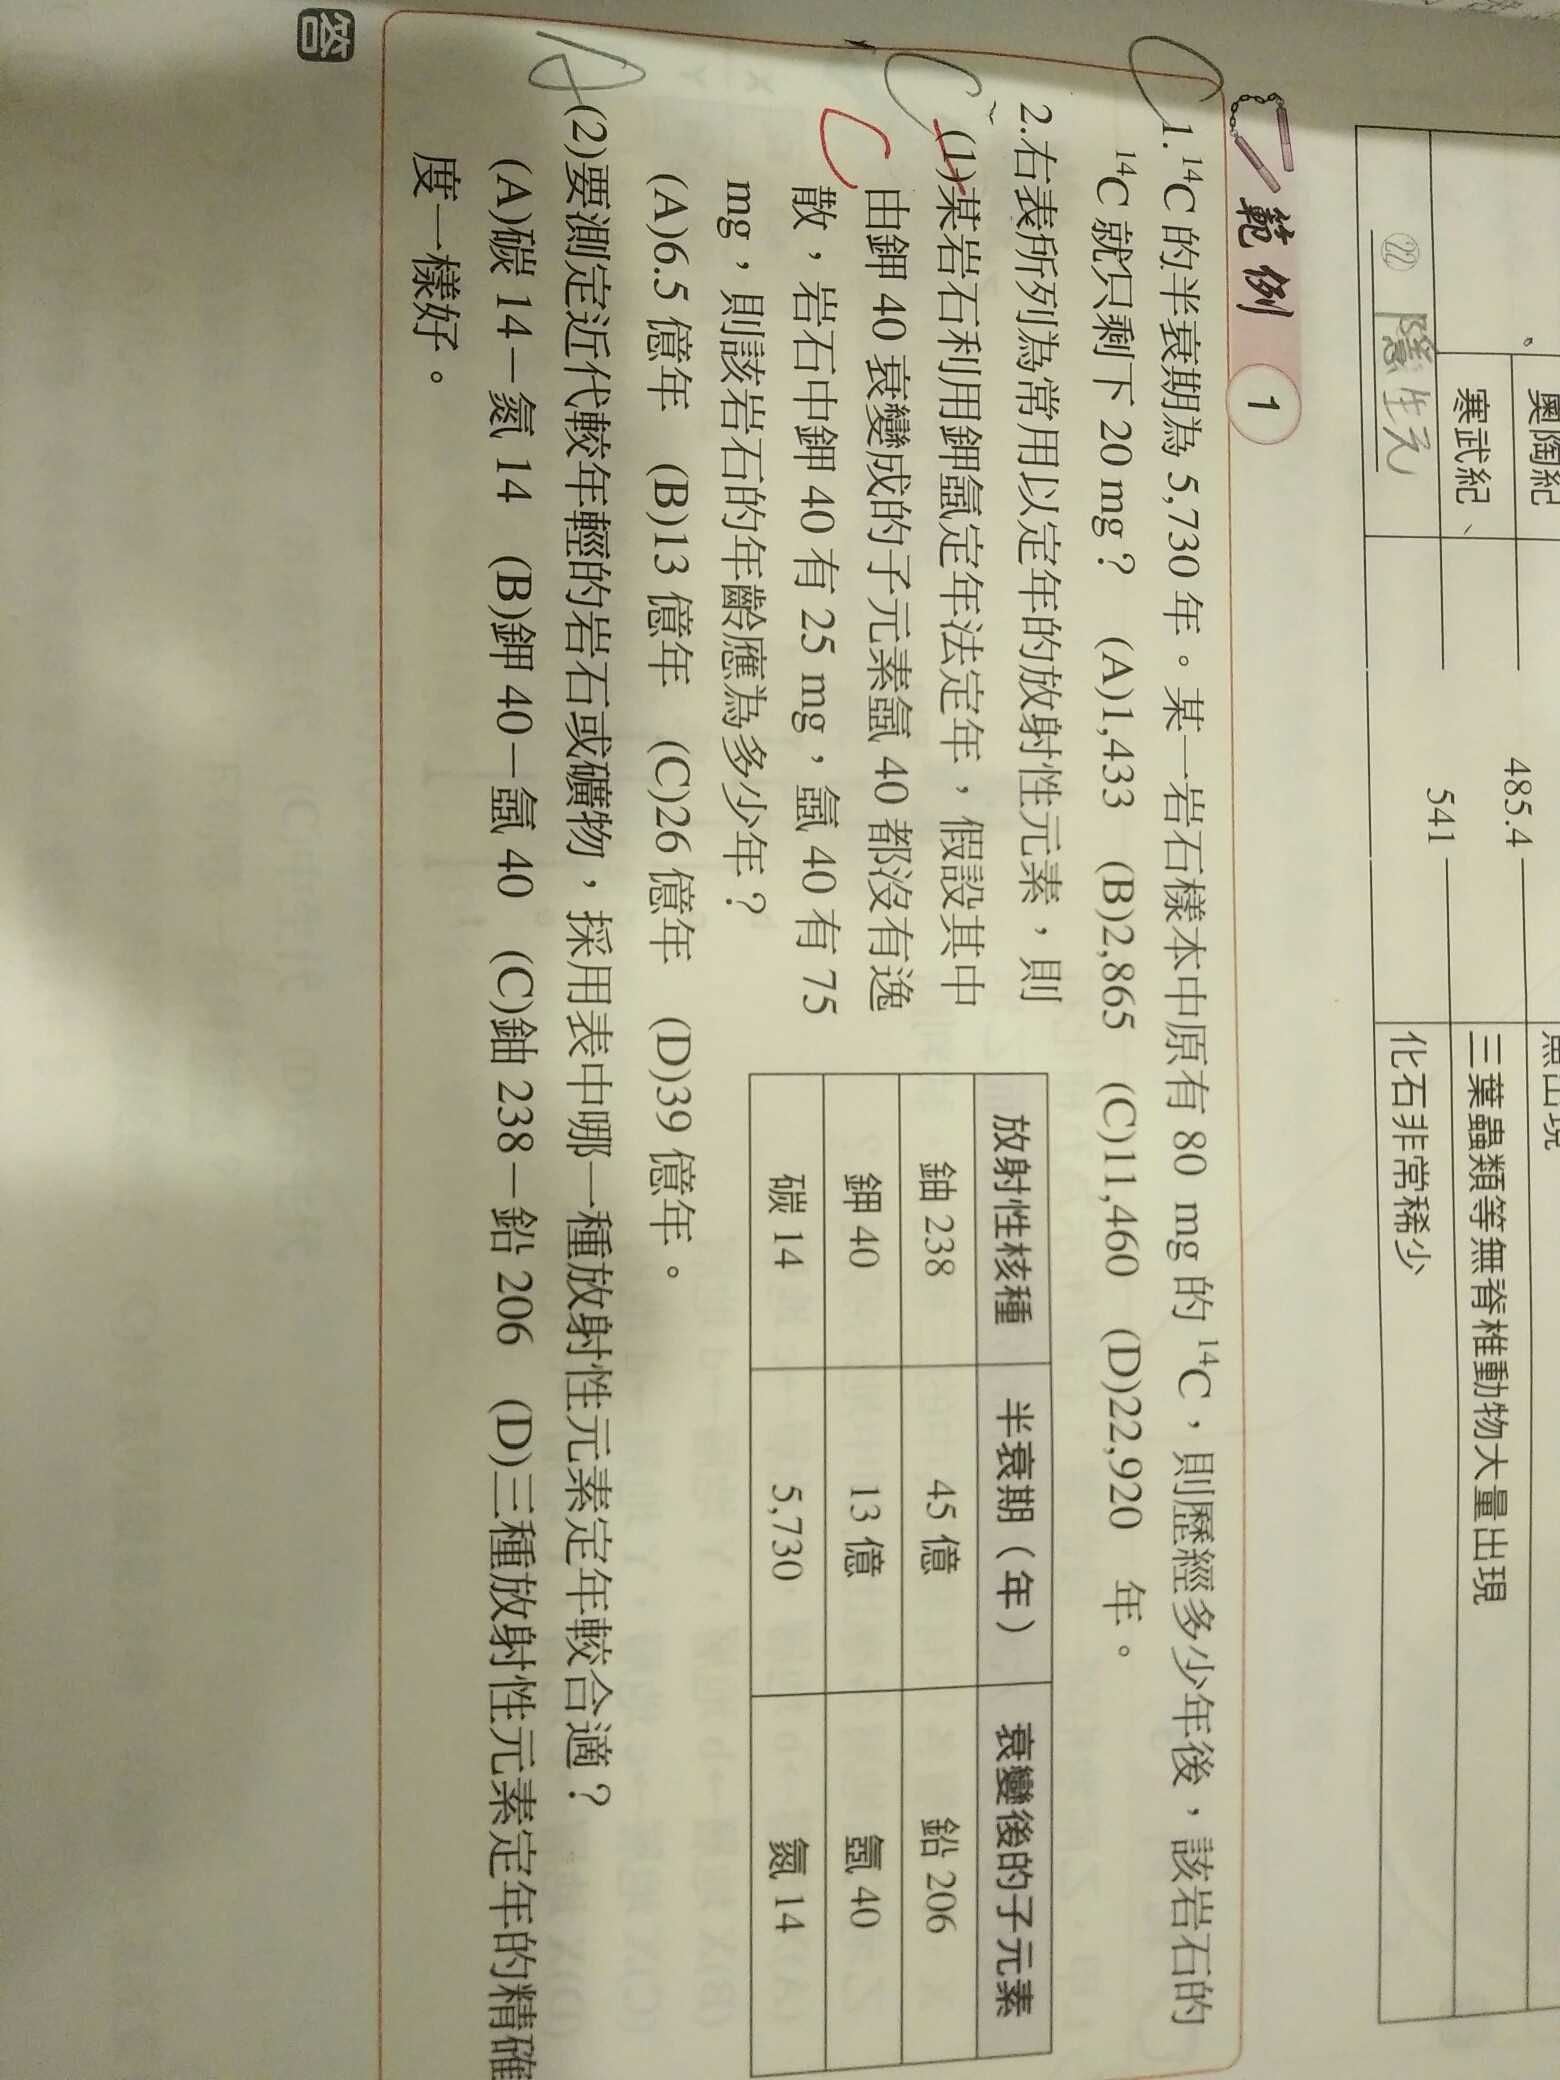 奧陶紀
485.4
寒武紀
541
三葉蟲類等無脊椎動物大量出現
㉒ 隱生元
化石非常稀少
範例 1
C 1. ¹⁴C 的半衰期為 5,730 年。某一岩石樣本中原有 80 mg 的 ¹⁴C，則歷經多少年後，該岩石的
¹⁴C 就只剩下 20 mg？ (A)1,433 (B)2,865 (C)11,460 (D)22,920 年。
2.右表所列為常用以定年的放射性元素，則
C (1)某岩石利用鉀氬定年法定年，假設其中
由鉀 40 衰變成的子元素氬 40 都沒有逸
C 散，岩石中鉀 40 有 25 mg，氬 40 有 75
mg，則該岩石的年齡應為多少年？
(A)6.5 億年 (B)13 億年 (C)26 億年 (D)39 億年。
放射性核種 半衰期（年） 衰變後的子元素
鈾 238 45 億 鉛 206
鉀 40 13 億 氬 40
碳 14 5,730 氮 14
A (2)要測定近代較年輕的岩石或礦物，採用表中哪一種放射性元素定年較合適？
(A)碳 14－氮 14 (B)鉀 40－氬 40 (C)鈾 238－鉛 206 (D)三種放射性元素定年的精確
度一樣好。
答